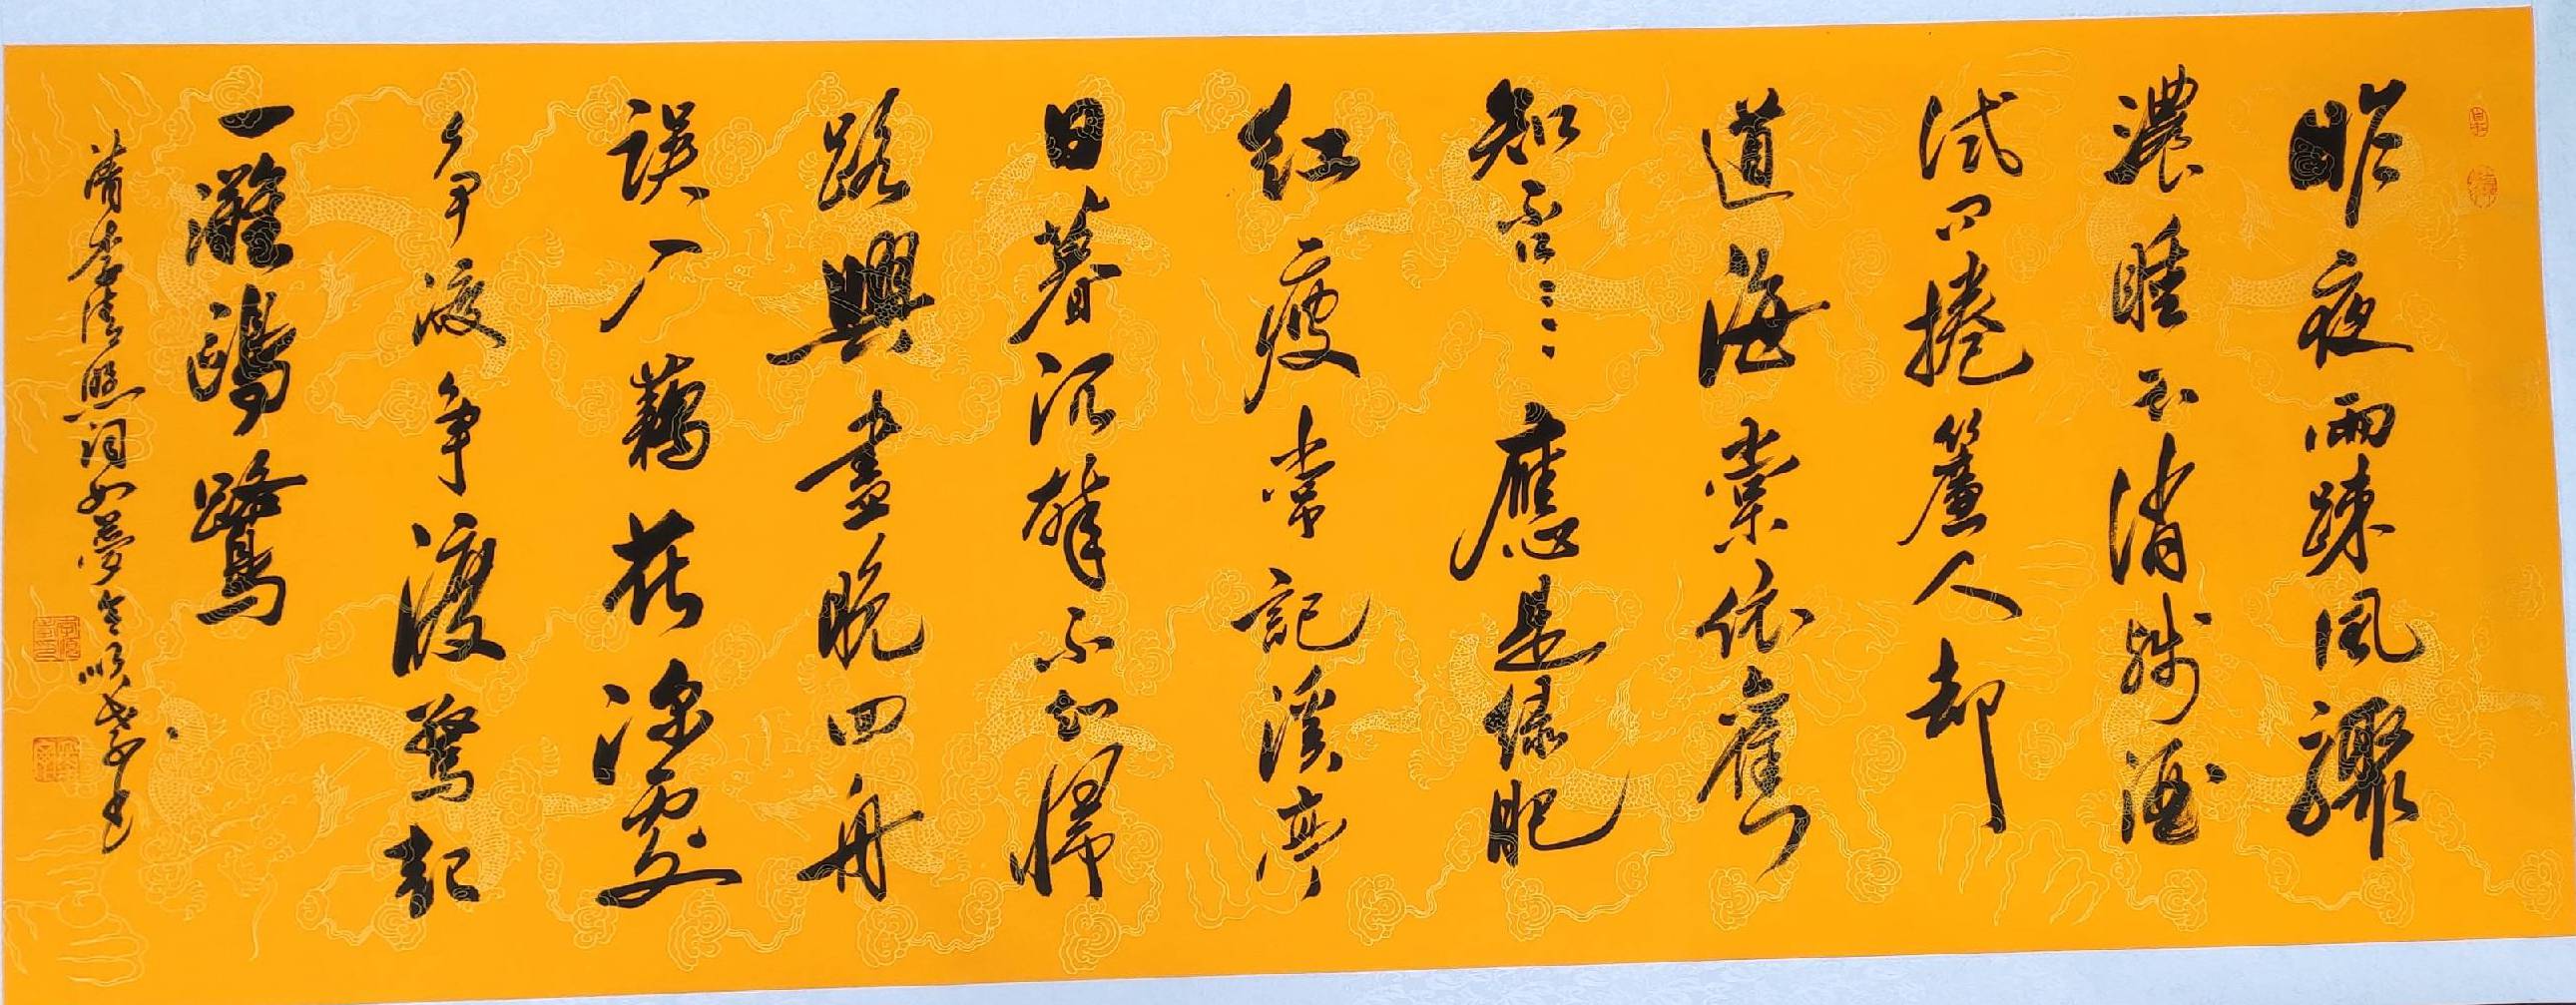 昨夜雨踈風驟
濃睡不消殘酒
試問捲簾人却
道海棠依舊
知否〻〻應是綠肥
紅瘦常記溪亭
日暮沉醉不知歸
路興盡晚回舟
誤入藕花深處
爭渡爭渡驚起
一灘鷗鷺
清李清照詞如夢令順書